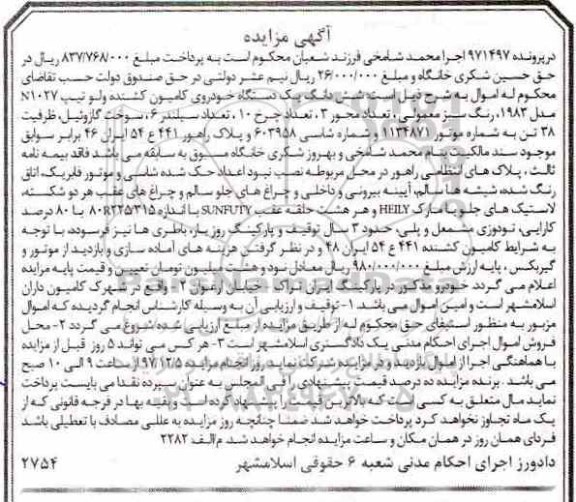 آگهی مزایده
درپرونده ۹۷۱۴۹۷ اجرا محمد شامخی فرزند شعبان محکوم است به پرداخت مبلغ ۸۳۷/۷۶۸/۰۰۰ ریال در
حق حسین شکری خانگاه و مبلغ ۲۶/۰۰۰/۰۰۰ ریال نیم عشر دولتی در حق صندوق دولت حسب تقاضای
محکوم له اموال به شرح ذیل است: شش دانگ یک دستگاه خودروی کامیون کشنده ولو تیپ N۱۰۲۷
مدل ۱۹۸۳، رنگ سبز معمولی، تعداد محور ۳، تعداد چرخ ۱۰، تعداد سیلندر ۶، سوخت گازوئیل، ظرفیت
۳۸ تن به شماره موتور ۱۱۳۴۸۷۱ و شماره شاسی ۶۰۳۹۵۸ و پلاک راهور ۴۴۱ ع ۵۴ ایران ۴۶ برابر سوابق
موجود سند مالکیت بنام محمد شامخی و بهروز شکری خانگاه مسبوق به سابقه می باشد فاقد بیمه نامه
ثالث، پلاک های انتظامی راهور در محل مربوطه نصب نبود اعداد حک شده شاسی و موتور فابریک، اتاق
رنگ شده، شیشه ها سالم، آیینه بیرونی و داخلی و چراغ های جلو سالم و چراغ های عقب هر دو شکسته،
لاستیک های جلو با مارک HEILY و هر هشت حلقه عقب SUNFUTY با اندازه ۸۰R۲۲۵۳۱۵ با ۸۰ درصد
کارایی، تودوزی مشمعل و پلی، حدود ۳ سال توقیف و پارکینگ روز باز، باطری ها نیز فرسوده، با توجه
به شرایط کامیون کشنده ۴۴۱ ع ۵۴ ایران ۴۸ و در نظر گرفتن هزینه های آماده سازی و بازدید از موتور و
گیربکس، پایه ارزش مبلغ ۹۸۰/۰۰۰/۰۰۰ ریال معادل نود و هشت میلیون تومان تعیین و قیمت پایه مزایده
اعلام می گردد خودرو مذکور در پارکینگ ایران تراک - خیابان ارغوان ۱۲ واقع در شهرک کامیون داران
اسلامشهر است و امین اموال می باشد ۱- توقیف و ارزیابی آن به وسیله کارشناس انجام گردیده که اموال
مزبور به منظور استیفای حق محکوم له از طریق مزایده از مبلغ ارزیابی شده شروع می گردد ۲- محل
فروش اموال اجرای احکام مدنی یک دادگستری اسلامشهر است ۳- هر کس می تواند ۵ روز قبل از مزایده
با هماهنگی اجرا از اموال بازدید و در مزایده شرکت نماید روز انجام مزایده ۹۷/۱۲/۵ از ساعت ۹ الی ۱۰ صبح
می باشد. برنده مزایده ده درصد قیمت پیشنهادی را فی المجلس به عنوان سپرده نقدا می بایست پرداخت
نماید مال متعلق به کسی است که بالاترین مبلغ را پیشنهاد کرده است و بقیه بها در فرجه قانونی که از
یک ماه تجاوز نخواهد کرد پرداخت خواهد شد ضمنا چنانچه روز مزایده به عللی مصادف با تعطیلی باشد
فردای همان روز در همان مکان و ساعت مزایده انجام خواهد شد. م الف ۲۲۸۲
دادورز اجرای احکام مدنی شعبه ۶ حقوقی اسلامشهر ۲۷۵۴